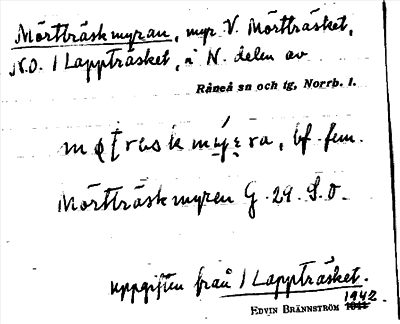 Mörtträskmyran, myr V. Mörtträsket,
N.O. 1 Lappträsket, i N. delen av
Råneå sn och tg, Norrb. l.
bf. fem.
Mörtträskmyren G. 29. S.O.
uppgiften från 1 Lappträsket.
1942
EDVIN BRÄNNSTRÖM